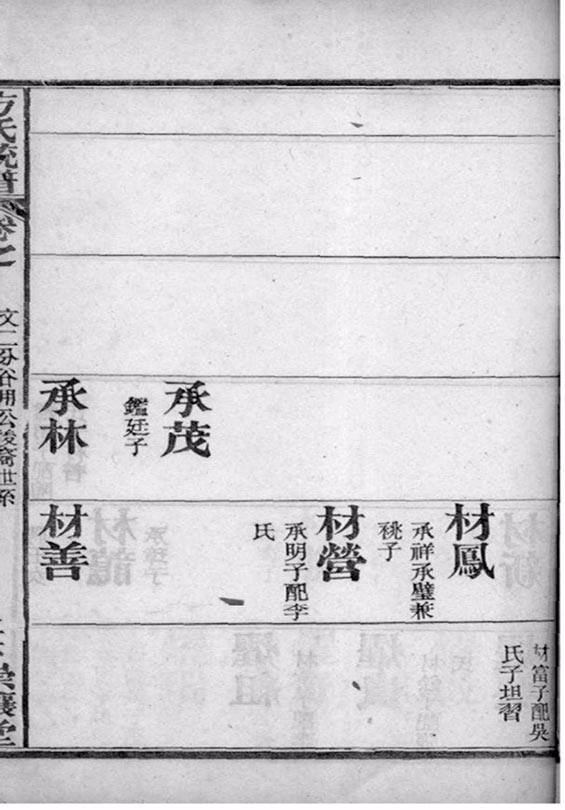 承茂
鑑廷子
承林
材鳳
承祥承璧兼
祧子
材營
承明子配李
氏
材善
材富子配吳
氏子坦習
方氏統譜
卷之
公後裔世系